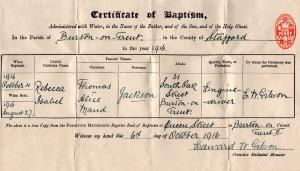 Certificate of Baptism,
Administered with Water, in the Name of the Father, and of the Son, and of the Holy Ghost.
In the Parish of Burton-on-Trent, in the County of Stafford
in the year 1916.
When Baptized. Child's Christian Name. Parents' Names. Abode. Quality, Trade, or Profession. By whom the Ceremony was performed.
1916
October 4
When Born.
1916
August 27
Rebecca
Isabel
Thomas
Alice
Maud
Jackson
31
South Oak
Street
Burton-on-
Trent
Engine-
driver
E.W. Gibson
The above is a true Copy from the PRIMITIVE METHODISTS Register Book of Baptisms at Queen Street in Burton-on-Trent Circuit
Witness my hand this 6th day of October 1916
Edward W. Gibson
Primitive Methodist Minister